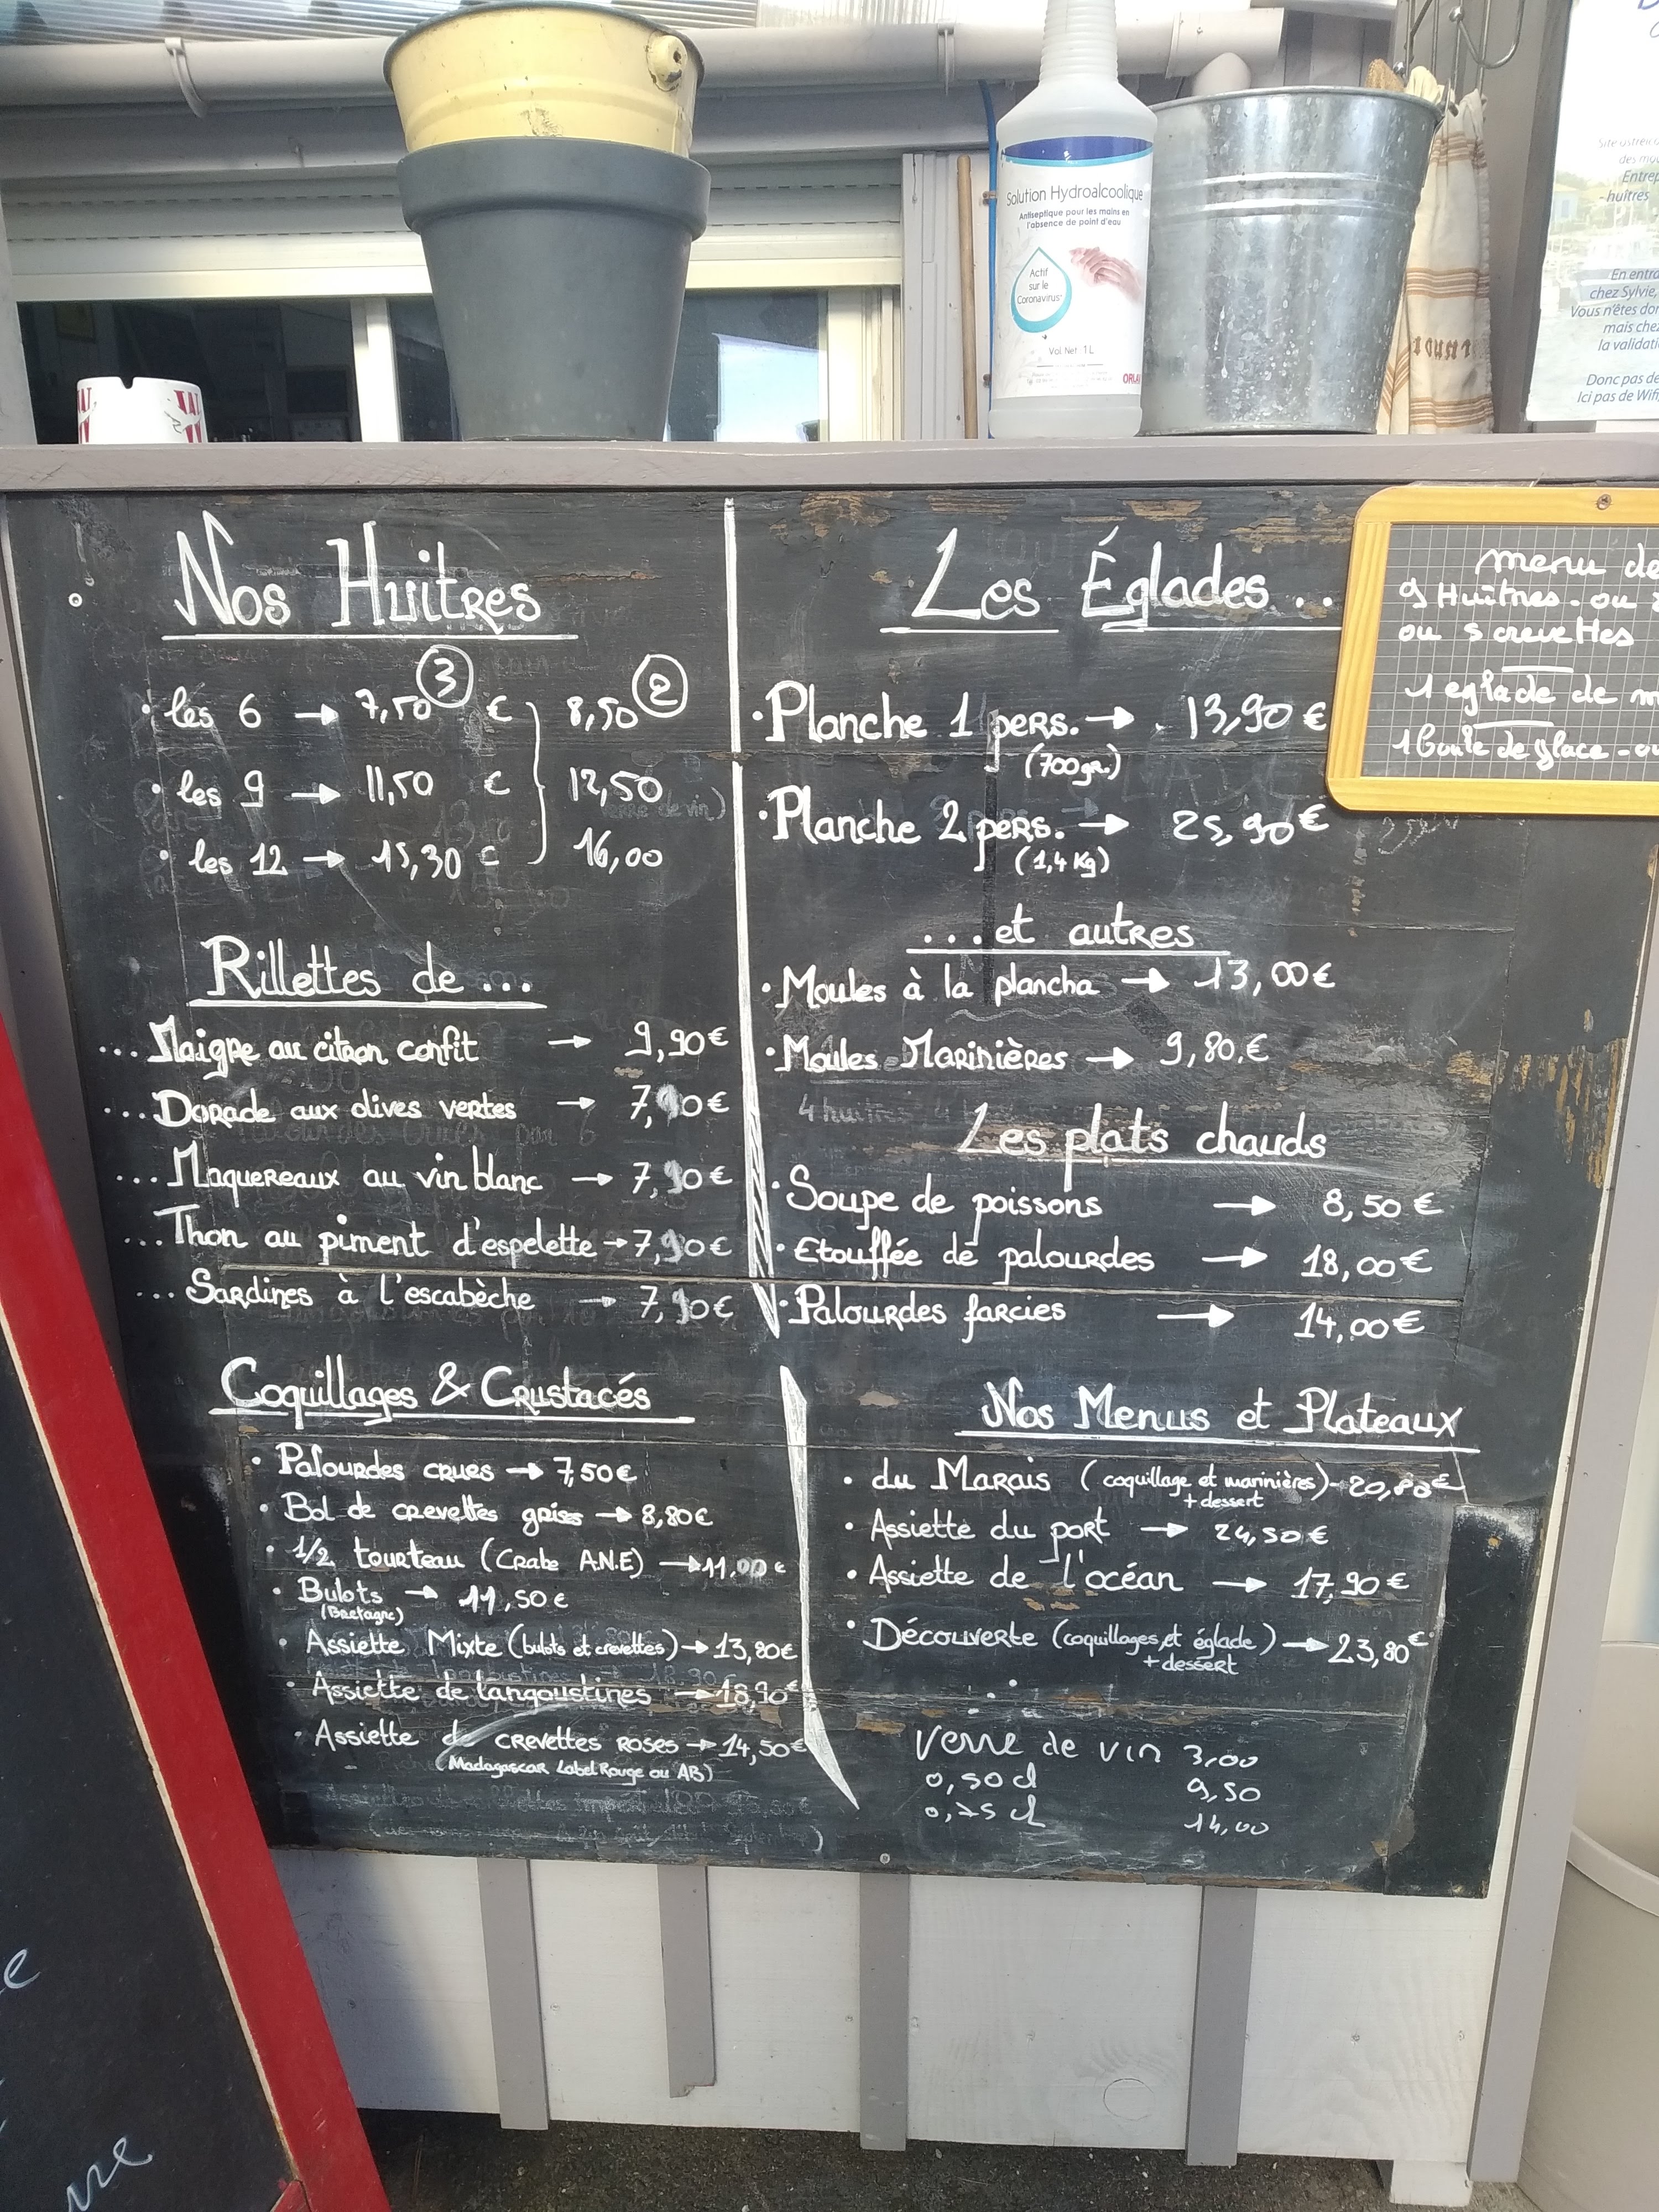 Solution Hydroalcoolique
Antiseptique pour les mains en
l'absence de point d'eau
Actif
sur le
Coronavirus
Vol. Net 1L
des
huîtres
chez Sylvie,
mais chez
Donc pas de
Ici pas de Wifi,
Nos Huitres
③ ②
• les 6 → 7,50 € 8,50
• les 9 → 11,50 € 12,50
• les 12 → 15,30 € 16,00
Rillettes de ...
... Maigre au citron confit → 9,90€
... Dorade aux olives vertes → 7,90€
... Maquereaux au vin blanc → 7,90€
... Thon au piment d'espelette → 7,90€
... Sardines à l'escabèche → 7,90€
Coquillages & Crustacés
• Palourdes crues → 7,50€
• Bol de crevettes grises → 8,80€
• 1/2 tourteau (Crabe A.N.E) → 11,00€
• Bulots → 11,50€
(Bretagne)
• Assiette Mixte (bulots et crevettes) → 13,80€
• Assiette de langoustines → 18,90€
• Assiette de crevettes roses → 14,50€
(Madagascar Label Rouge ou AB)
Les Églades ..
• Planche 1 pers. → 13,90€
(700gr.)
• Planche 2 pers. → 25,90€
(1,4 Kg)
...et autres
• Moules à la plancha → 13,00€
• Moules Marinières → 9,80.€
Les plats chauds
• Soupe de poissons → 8,50€
• Etouffée de palourdes → 18,00€
• Palourdes farcies → 14,00€
Nos Menus et Plateaux
• du Marais (coquillage et marinières) 20,80€
+ dessert
• Assiette du port → 24,50€
• Assiette de l'océan → 17,90€
• Découverte (coquillages et églade) → 23,80€
+ dessert
Verre de vin 3,00
0,50 cl 9,50
0,75 cl 14,00
menu de
9 Huîtres - ou
ou 5 crevettes
1 eglade de
1 boule de glace - ou